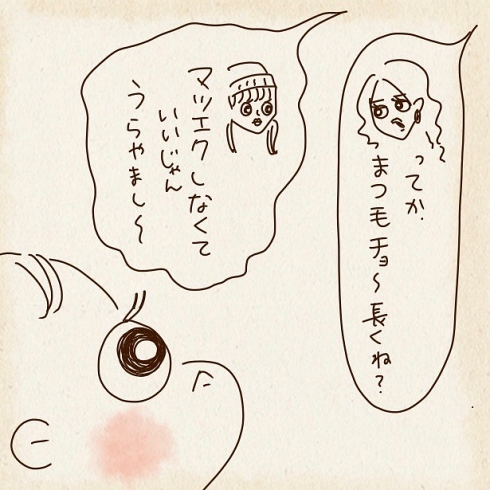 ってか
まつ毛チョ〜長くね？
マツエクしなくて
いいじゃん
うらやまし〜